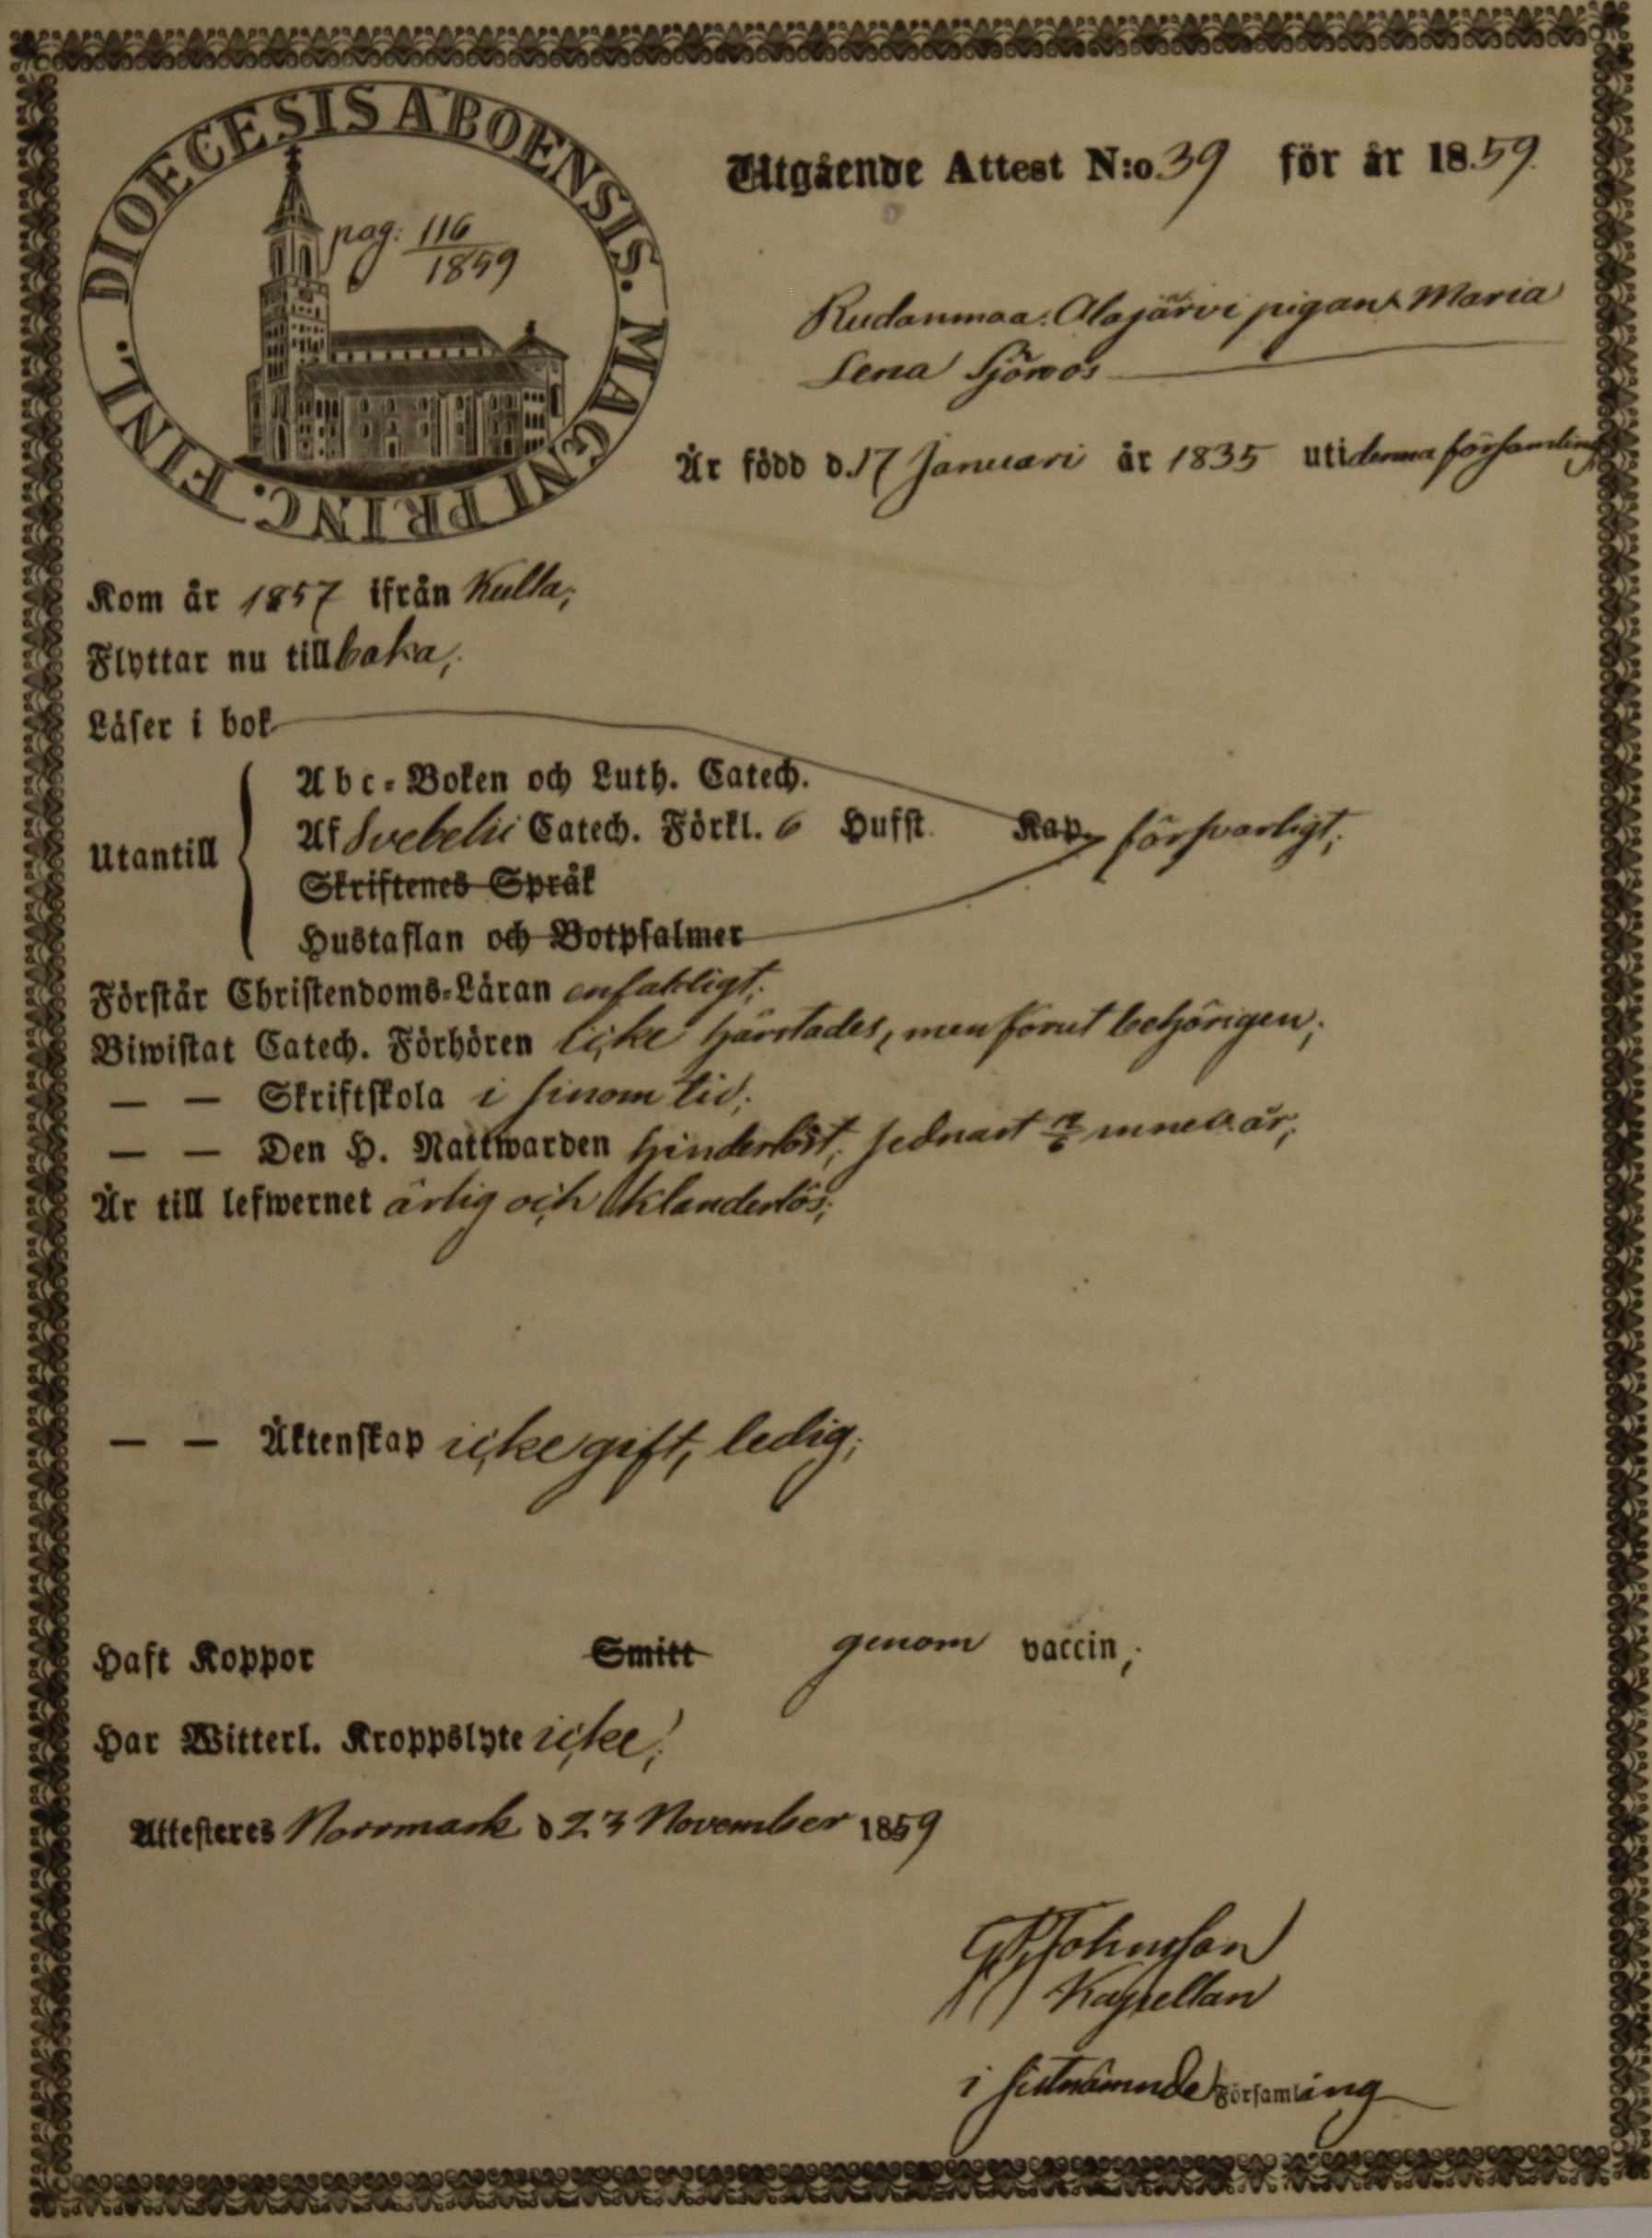 DIOECESIS ABOENSIS. MAGNI PRINC. FINL.
pag: 116
1859
Utgående Attest N:o 39 för år 1859.
Rudanmaa Alajärvi pigan Maria
Lena Sjöroos
Är född d. 17 Januari år 1835 uti denna församling
Kom år 1857 ifrån Kulla;
Flyttar nu tillbaka;
Läser i bok
Abc-Boken och Luth. Catech.
Utantill
Af Svebelii Catech. Förkl. 6 Hufst. Kap. försvarligt;
Skriftenes Språk
Hustaflan och Botpsalmer
Förstår Christendoms-Läran enfaldigt;
Biwistat Catech. Förhören icke härstädes, men förut behörigen;
— — Skriftskola i sinom tid;
— — Den H. Nattwarden hinderlöst, sednast innev. år;
Är till lefwernet ärlig och oklanderlös;
— — Äktenskap icke gift, ledig;
Haft Koppor Smitt genom vaccin;
Har Witterl. Kroppslyte icke;
Attesteres Norrmark d 23 November 1859
Johnsson
Kapellan
i sistnämnde Församling